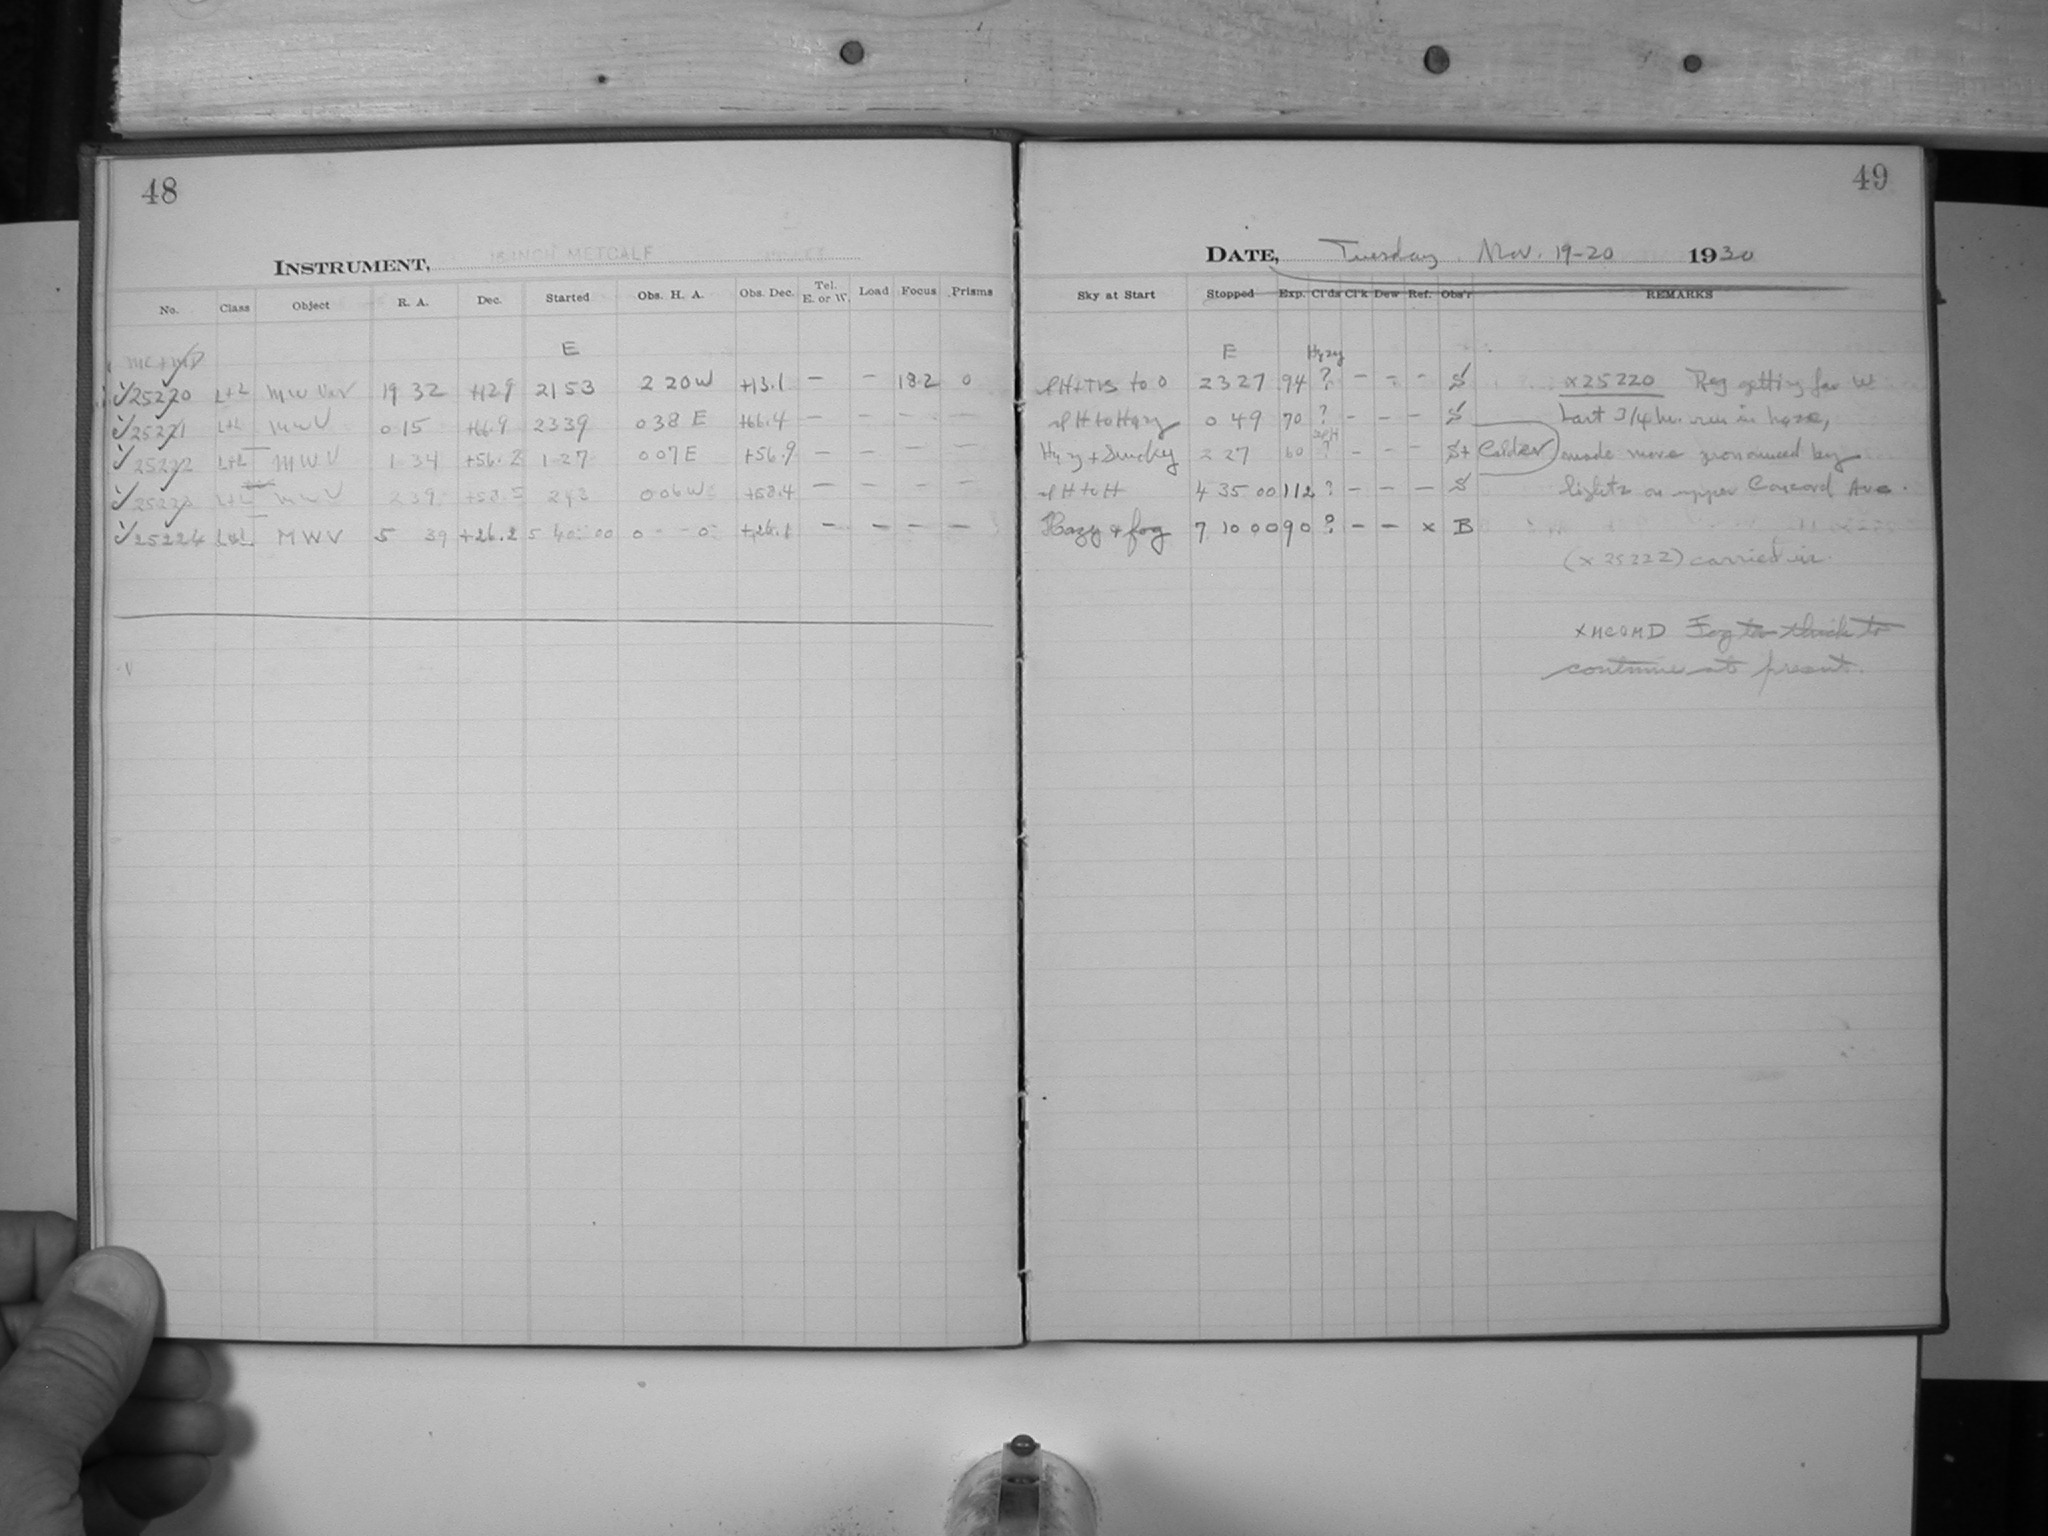 48
INSTRUMENT, 16 INCH METCALF
No. Class Object R. A. Dec. Started Obs. H. A. Obs. Dec. Tel. E. or W. Load Focus Prisms
E
✓25220 L+L MW Var 19 32 +12.9 21 53 2 20 W +13.1 – – 18.2 0
✓25221 L+L MWV 0 15 +66.9 23 39 0 38 E +66.4 – – – –
✓25222 L+L MWV 1 34 +56.2 1 27 0 07 E +56.9 – – – –
✓25223 L+L MWV 2 39 2 43 0 06 W +58.4 – – – –
✓25224 L+L MWV 5 39 +26.2 5 40 00 0 0 +26.1 – – – –
49
DATE, Tuesday Nov. 19-20 1930
Sky at Start Stopped Exp. Cl'ds Cl'k Dew Ref. Obs'r REMARKS
E Hzy
to 0 23 27 94 ? – – – S x25220 Reg getting far W
to Hazy 0 49 70 ? – – – S Last 3/4 hr. run in haze,
Hzy + Smoky 2 27 60 ? – – – S+ Calder made more pronounced by
H to H 4 35 00 112 ? – – – S lights on upper Concord Ave.
Hazy & fog 7 10 00 90 ? – – x B
(x 25222) carried in.
x MC & MD Fog too thick to
continue at present.